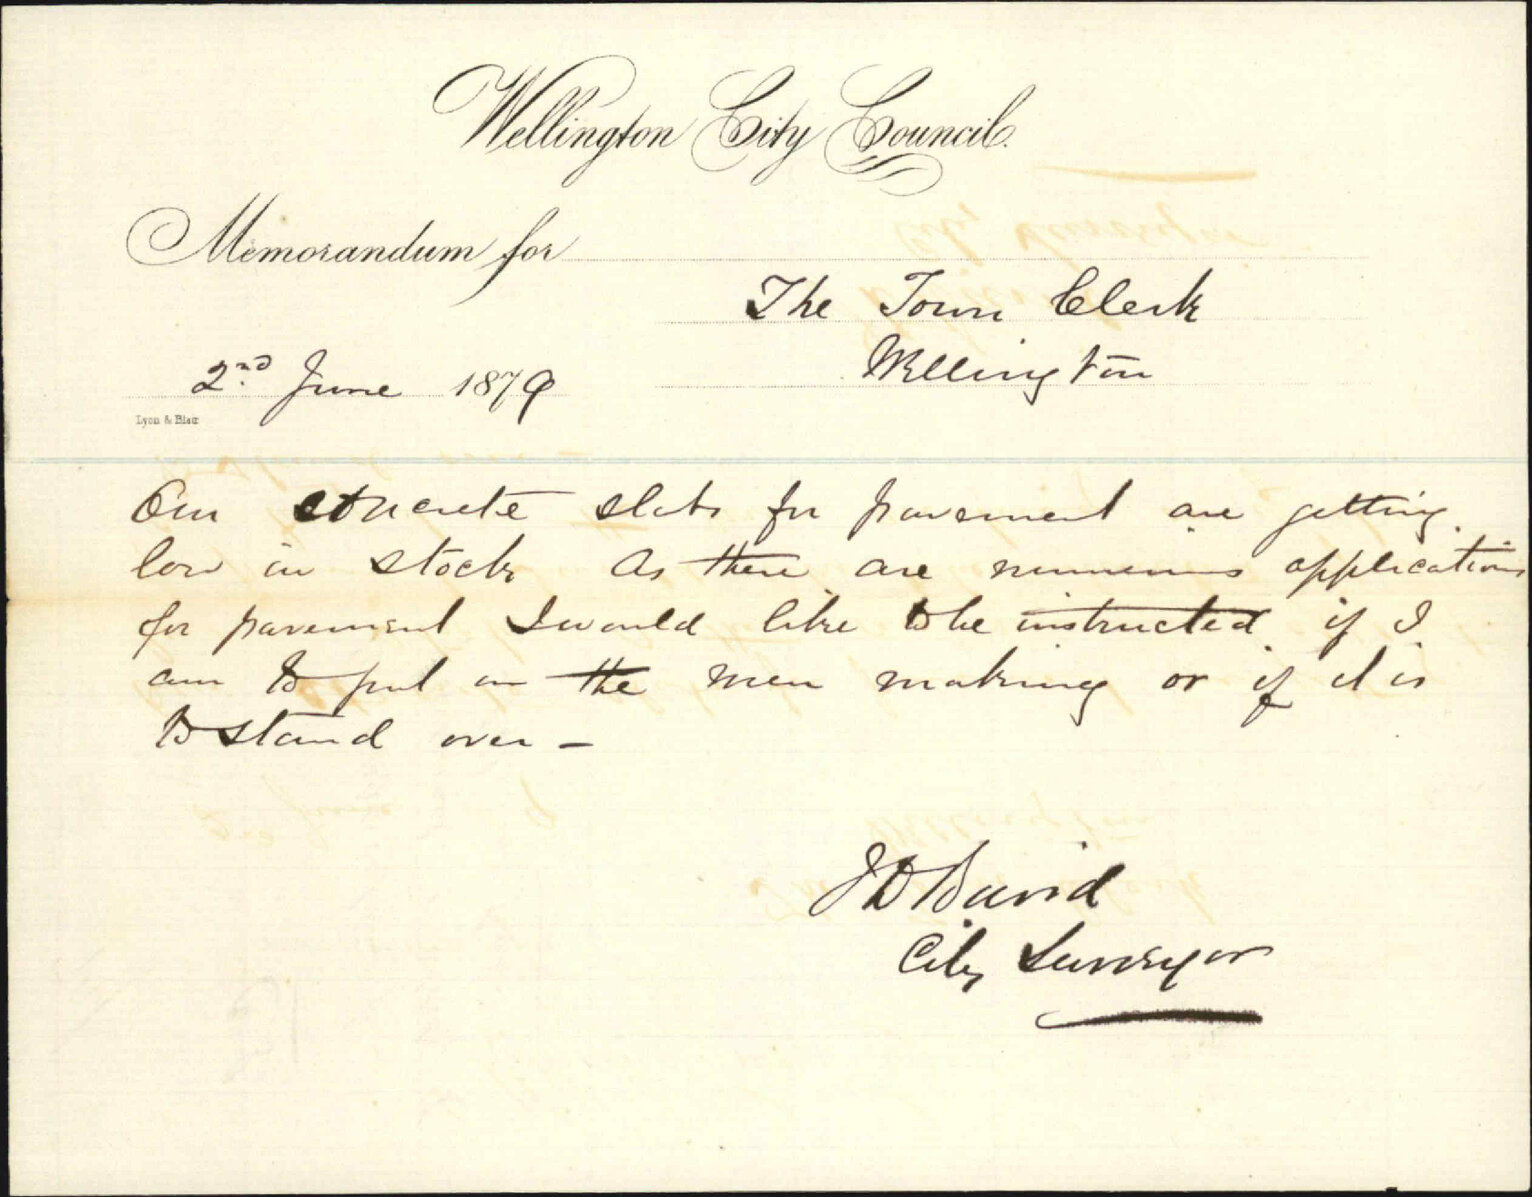 Wellington City Council.
Memorandum for
The Town Clerk
Wellington
2nd June 1879
Lyon & Blair
Our concrete slabs for pavement are getting
low in stock As there are numerous applications
for pavement I would like to be instructed if I
am to put on the men making or if it is
to stand over –
J D Baird
City Surveyor